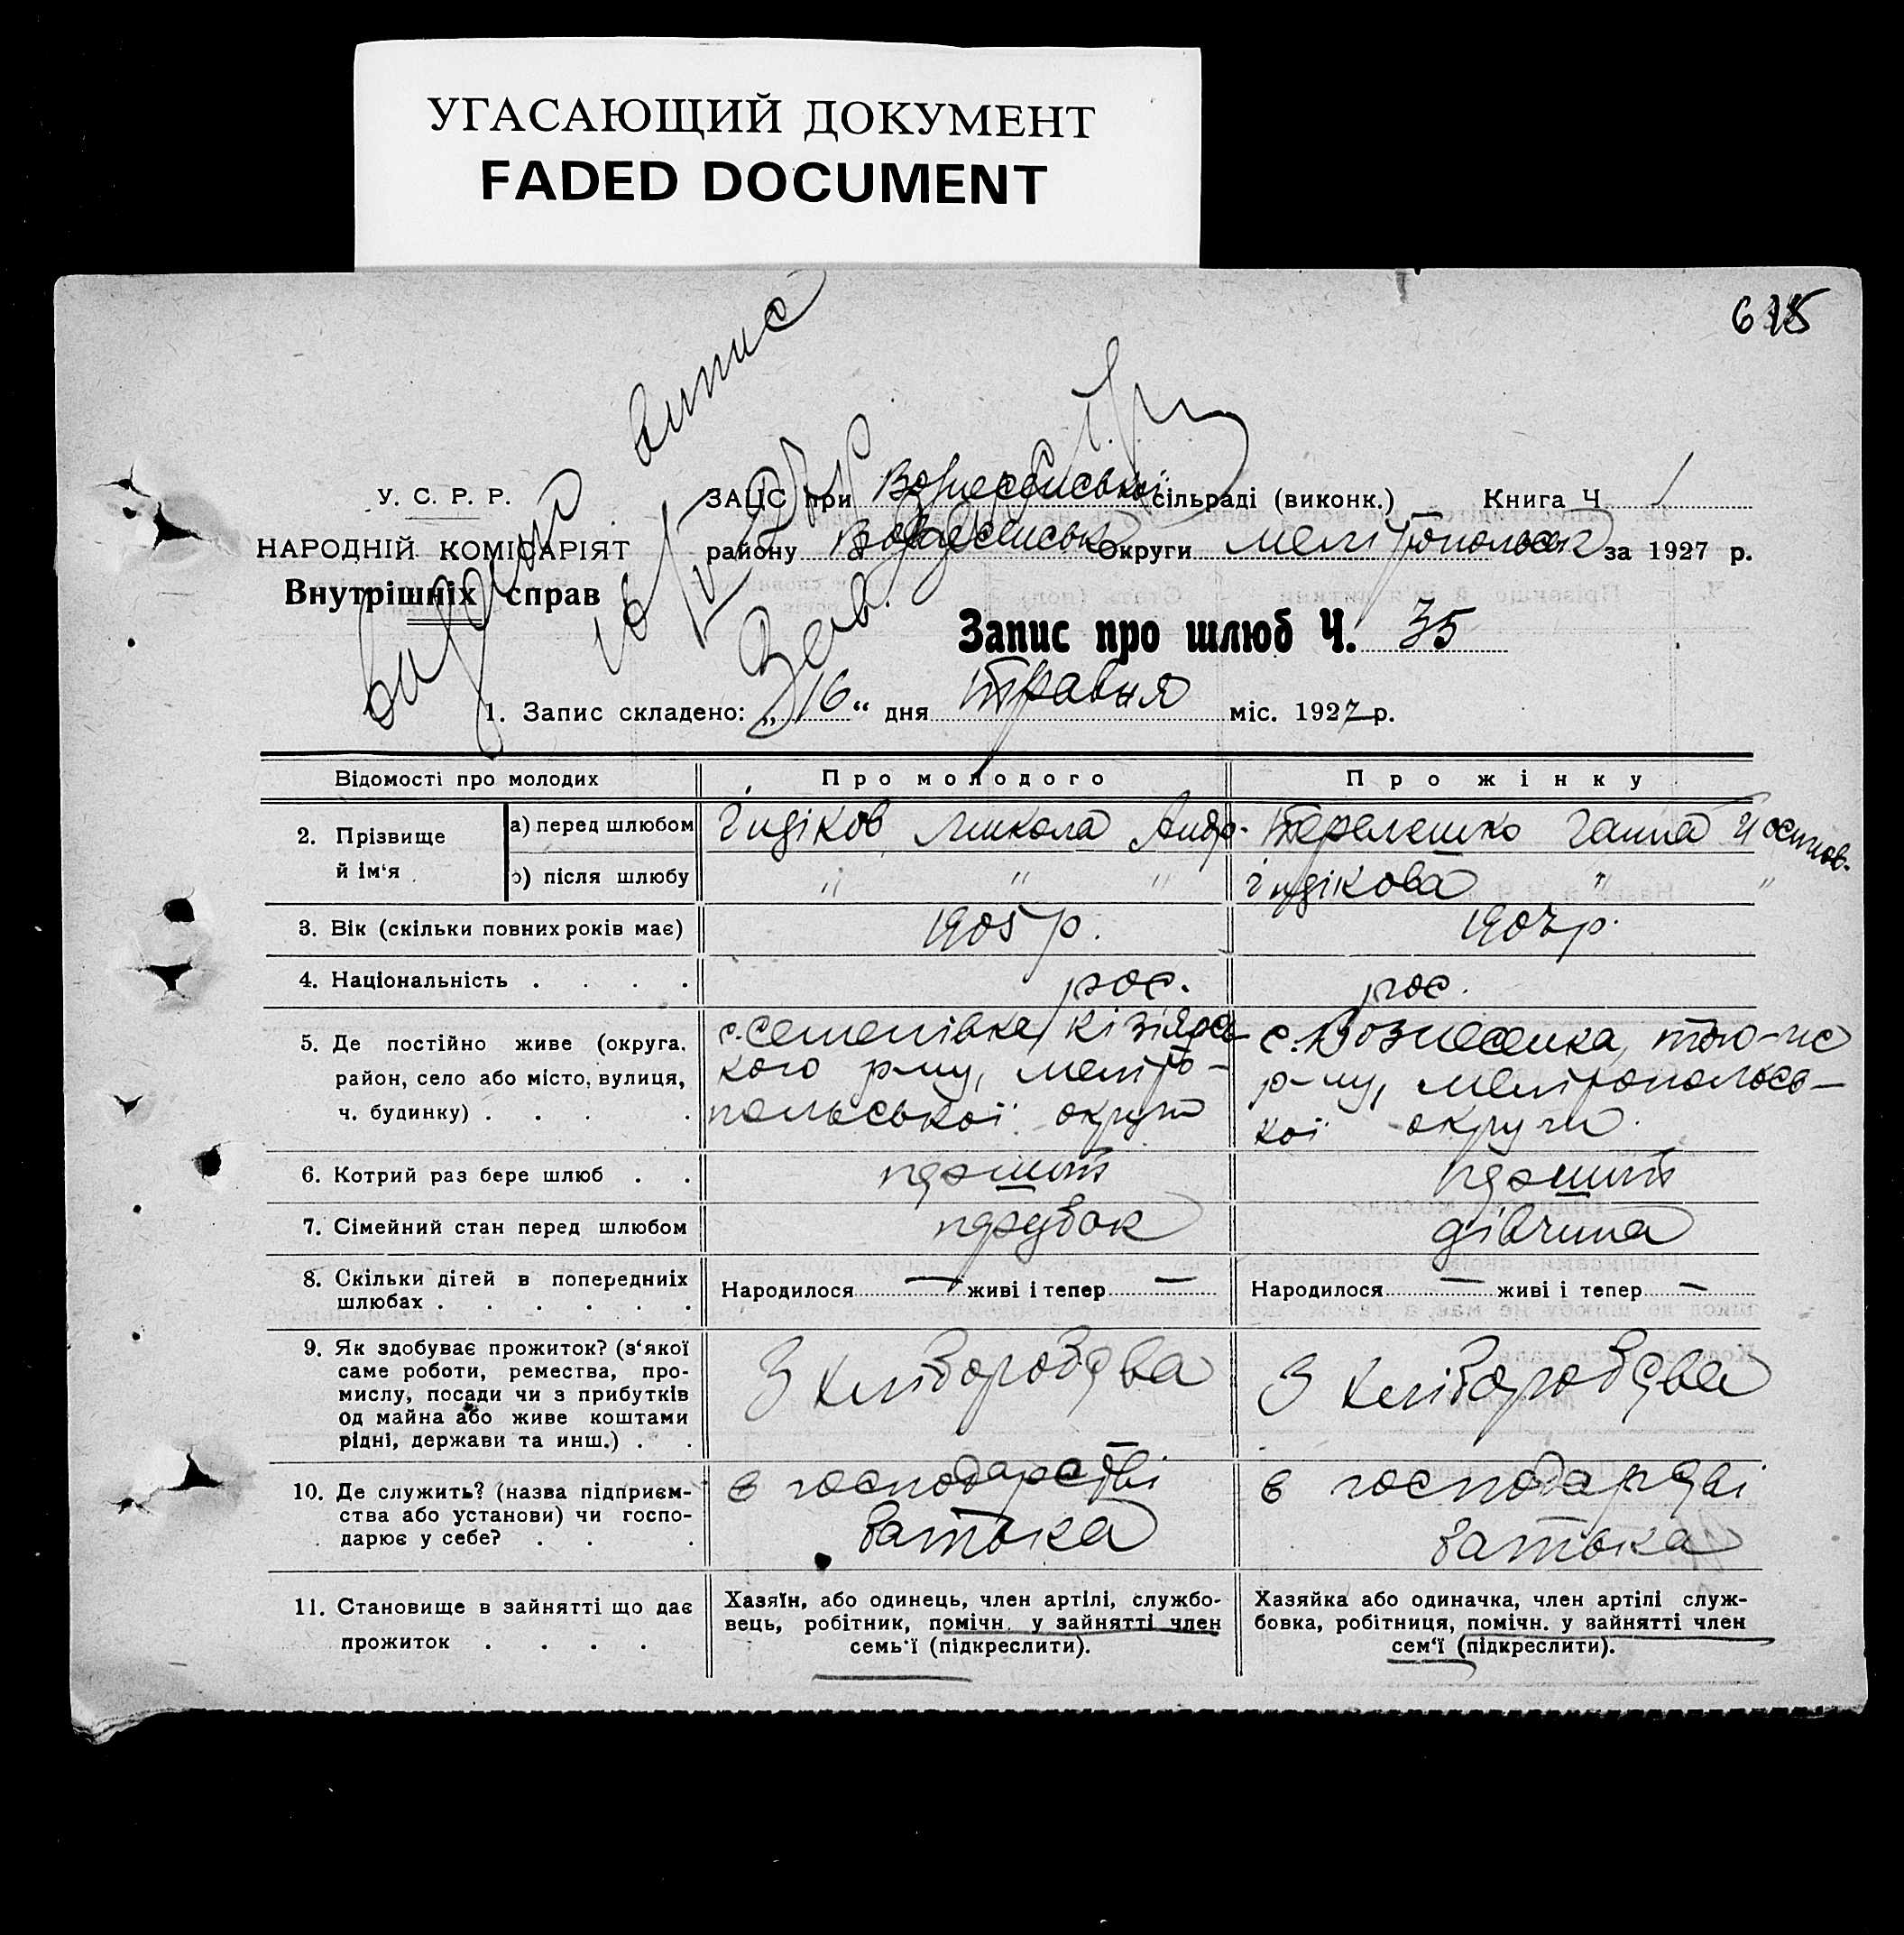 УГАСАЮЩИЙ ДОКУМЕНТ
FADED DOCUMENT
615
Видано випис
Зав.
У. С. Р. Р.
НАРОДНІЙ КОМІСАРІЯТ
Внутрішніх справ
ЗАЦС при Вознесенської сільраді (виконк.) Книга Ч 1
району Вознесенськ Округи Мелітопольськ за 1927 р.
Запис про шлюб Ч. 35
1. Запис складено: „16“ дня травня міс. 1927 р.
Відомості про молодих
Про молодого
Про жінку
2. Прізвище й ім‘я
а) перед шлюбом
Гидіков Микола Андр.
Терелешко Ганна Йосипов.
б) після шлюбу
" " "
Гидікова " "
3. Вік (скільки повних років має)
1905 р.
1907 р.
4. Національність . . . .
рос.
рос.
5. Де постійно живе (округа,
район, село або місто, вулиця,
ч. будинку) . . .
с. Семенівка, Кізіярсь
кого р-ну, меліто-
польської округи
с. Вознесенка, того-ж
р-ну, Мелітопольсь-
кої округи.
6. Котрий раз бере шлюб . .
перший
перший
7. Сімейний стан перед шлюбом
парубок
дівчина
8. Скільки дітей в попередниіх
шлюбах . . . . . .
Народилося — живі і тепер —
Народилося — живі і тепер —
9. Як здобуває прожиток? (з‘якої
саме роботи, ремества, про-
мислу, посади чи з прибутків
од майна або живе коштами
рідні, держави та инш.) . .
З хліборобства
З хліборобства
10. Де служить? (назва підприєм-
ства або установи) чи госпо-
дарює у себе? . . .
в господарстві
батька
в господарстві
батька
11. Становище в зайнятті що дає
прожиток . . . .
Хазяїн, або одинець, член артілі, службо-
вець, робітник, помічн. у зайнятті член
семь‘ї (підкреслити).
Хазяйка або одиначка, член артілі служ-
бовка, робітниця, помічн. у зайнятті член
сем‘ї (підкреслити).